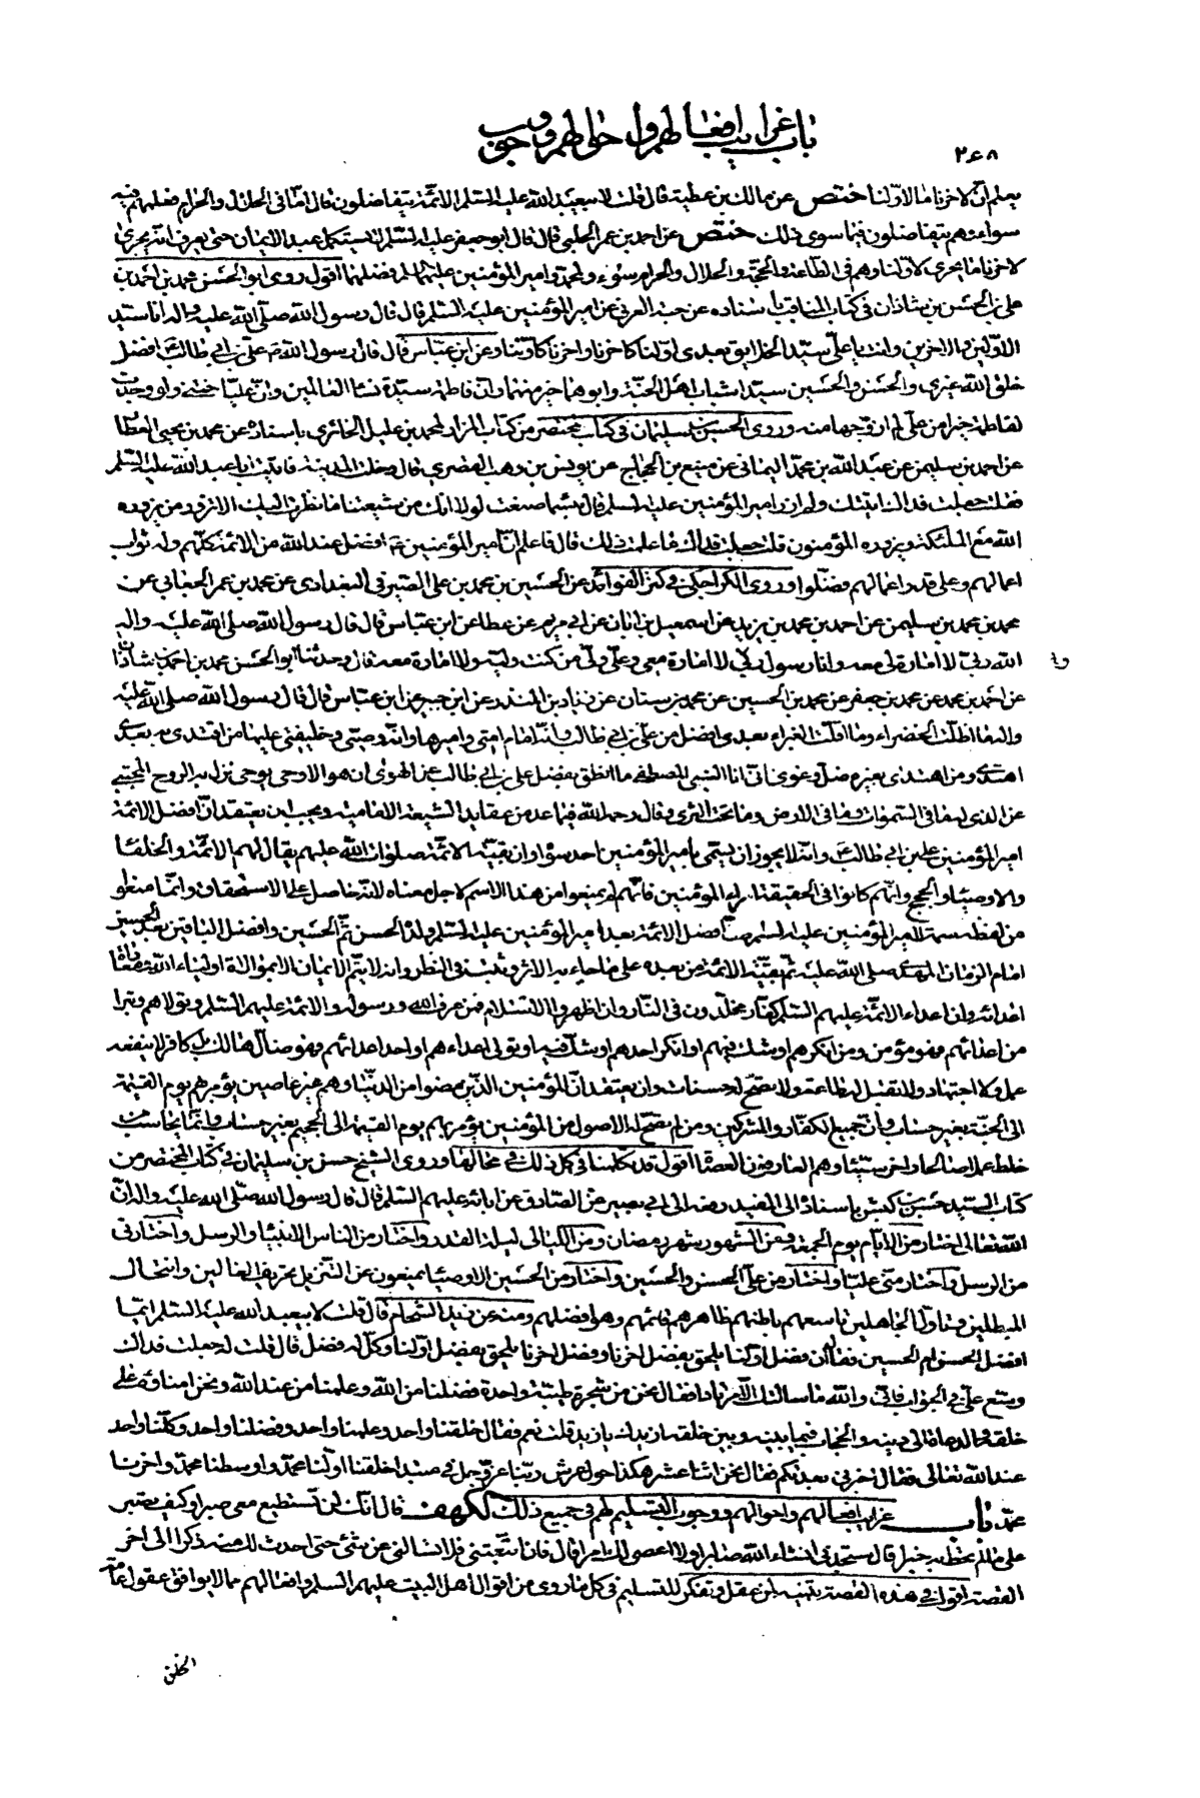 باب غرايب افعالهم واحوالهم ووجوب
٢٦٨
يعلم ان لاخرنا ما لاولنا ختص عن مالك بن عطية قال قلت لابيعبد الله عليه السلم الائمة يتفاضلون قال اما في الحلال والحرام فعلمهم فيه
سواء وهم يتفاضلون فيما سوى ذلك ختص عن احمد بن عمر الحلبي قال قال ابو جعفر عليه السلم لا يستكمل عبد الايمان حتى يعرف انه يجري
لاخرنا ما يجري لاولنا وهم في الطاعة والحجة والحلال والحرام سواء ولمحمد وامير المؤمنين عليهما السلم فضلهما اقول روى ابو الحسن محمد بن احمد بن
علي بن الحسن بن شاذان في كتاب المناقب باسناده عن حبة العرني عن امير المؤمنين عليه السلم قال قال رسول الله صلى الله عليه واله انا سيد
الاولين والاخرين وانت يا علي سيد الخلايق بعدي اولنا كاخرنا واخرنا كاولنا وعن ابن عباس قال قال رسول الله ص علي بن ابي طالب ع افضل
خلق الله غيري والحسن والحسين سيدا شباب اهل الجنة وابوهما خير منهما وان فاطمة سيدة نساء العالمين وان عليا ختني ولو وجدت
لفاطمة خيرا من علي لم ازوجها منه وروى الحسن بن سليمان في كتاب مختصر من كتاب المزار لمحمد بن علي الحائري باسناده عن محمد بن يحيى العطار
عن احمد بن سليمن عن عبد الله بن محمد اليماني عن منيع بن الحجاج عن يونس بن وهب القصري قال دخلت المدينة فاتيت ابا عبد الله عليه السلم
فقلت جعلت فداك اتيتك ولم ازر امير المؤمنين عليه السلم قال بئسما صنعت لولا انك من شيعتنا ما نظرت اليك الا تزور من يزوره
الله مع الملئكة ويزوره المؤمنون قلت جعلت فداك ما علمت ذلك قال فاعلم ان امير المؤمنين ع افضل عند الله من الائمة كلهم وله ثواب
اعمالهم وعلى قدر اعمالهم فضلوا وروى الكراجكي في كنز الفوائد عن الحسين بن محمد بن علي الصيرفي البغدادي عن محمد بن عمر الجعابي عن
محمد بن محمد بن سليمن عن احمد بن محمد بن يزيد عن اسمعيل بن ابان عن ابي مريم عن عطا عن ابن عباس قال قال رسول الله صلى الله عليه واله
الله ربي لا امارة لي معه وانا رسول ربي لا امارة معي وعلي ولي من كنت وليه ولا امارة معه قال وحدثنا ابو الحسن محمد بن احمد بن شاذان
عن احمد بن محمد عن محمد بن جعفر عن محمد بن الحسين عن محمد بن سنان عن زياد بن المنذر عن ابن جبير عن ابن عباس قال قال رسول الله صلى الله عليه
واله ما اظلت الخضراء وما اقلت الغبراء بعدي افضل من علي بن ابي طالب وانه امام امتي واميرها وانه وصيي وخليفتي عليها من اقتدى به بعدي
اهتدى ومن اهتدى بغيره ضل وغوى اني انا النبي المصطفى ما انطق بفضل علي بن ابي طالب عن الهوى ان هو الا وحي يوحى نزل به الروح المجتبى
عن الذي له ما في السموات وما في الارض وما تحت الثرى وقال رحمه الله فيما عد من عقايد الشيعة الامامية ويجب ان يعتقد ان افضل الائمة
امير المؤمنين علي بن ابي طالب ع وانه لا يجوز ان يسمى بامير المؤمنين احد سواه وان بقية الائمة صلوات الله عليهم يقال لهم الائمة والخلفاء
والاوصياء والحجج وانهم كانوا في الحقيقة امراء المؤمنين فانهم لم يمنعوا من هذا الاسم لاجل معناه لانه حاصل على الاستحقاق وانما منعوا
من لفظه سمة لامير المؤمنين عليه السلم وان افضل الائمة بعد امير المؤمنين عليه السلم ولده الحسن ثم الحسين وافضل الباقين بعد الحسين
امام الزمان المهدي صلى الله عليه ثم بقية الائمة من بعده على ما جاء به الاثر وثبت في النظر وانه لا يتم الايمان الا بموالاة اولياء الله ومعاداة
اعدائه وان اعداء الائمة عليهم السلم كفار مخلدون في النار وان اظهروا الاسلام فمن عرف الله ورسوله والائمة عليهم السلم وتولاهم وتبرا
من اعدائهم فهو مؤمن ومن انكرهم او شك فيهم او انكر احدهم او شك فيه او تولى اعداءهم او احد اعدائهم فهو ضال هالك بل كافر لا ينفعه
عمل ولا اجتهاد ولا تقبل له طاعة ولا يصح له حسنات وان يعتقد ان المؤمنين الذين مضوا من الدنيا وهم غير عاصين يؤمر بهم يوم القيمة
الى الجنة بغير حساب وان جميع الكفار والمشركين ومن لم تصح له الاصول من المؤمنين يؤمر بهم يوم القيمة الى الجحيم بغير حساب وانما يحاسب
من خلط عملا صالحا واخر سيئا وهم العارفون العصاة اقول قد تكلمنا في كل ذلك في محالها وروى الشيخ حسن بن سليمان في كتاب المختصر من
كتاب السيد حسن بن كبش باسناده الى المفيد رفعه الى ابي بصير عن الصادق عن ابائه عليهم السلم قال قال رسول الله صلى الله عليه واله ان
الله تعالى اختار من الايام يوم الجمعة ومن الشهور شهر رمضان ومن الليالي ليلة القدر واختار من الناس الانبياء والرسل واختارني
من الرسل واختار مني عليا واختار من علي الحسن والحسين واختار من الحسين الاوصياء يمنعون عن التنزيل تحريف الغالين وانتحال
المبطلين وتاول الجاهلين تاسعهم باطنهم ظاهرهم قائمهم وهو افضلهم ومنه عن زيد الشحام قال قلت لابيعبد الله عليه السلم ايما
افضل الحسن ام الحسين فقال ان فضل اولنا يلحق بفضل اخرنا وفضل اخرنا يلحق بفضل اولنا وكل له فضل قال قلت له جعلت فداك
وسع علي في الجواب فاني والله ما سالتك الا مرتادا فقال نحن من شجرة طيبة واحدة فضلنا من الله وعلمنا من عند الله ونحن امناؤه على
خلقه والدعاة الى دينه والحجاب فيما بينه وبين خلقه ازيدك يا زيد قلت نعم فقال خلقنا واحد وعلمنا واحد وفضلنا واحد وكلنا واحد
عند الله تعالى فقال اخبرني بعدتكم فقال نحن اثنا عشر هكذا حول عرش ربنا عز وجل في مبتدا خلقنا اولنا محمد واوسطنا محمد واخرنا
محمد باب غرايب افعالهم واحوالهم ووجوب التسليم لهم في جميع ذلك الكهف قال انك لن تستطيع معي صبرا وكيف تصبر
على ما لم تحط به خبرا قال ستجدني انشاء الله صابرا ولا اعصي لك امرا قال فان اتبعتني فلا تسالني عن شئ حتى احدث لك منه ذكرا الى اخر
القصة اقول في هذه القصة تنبيه لمن عقل وتفكر للتسليم في كل ما روي من اقوال اهل البيت عليهم السلم وافعالهم مما لا يوافق عقول عامة
الخلق